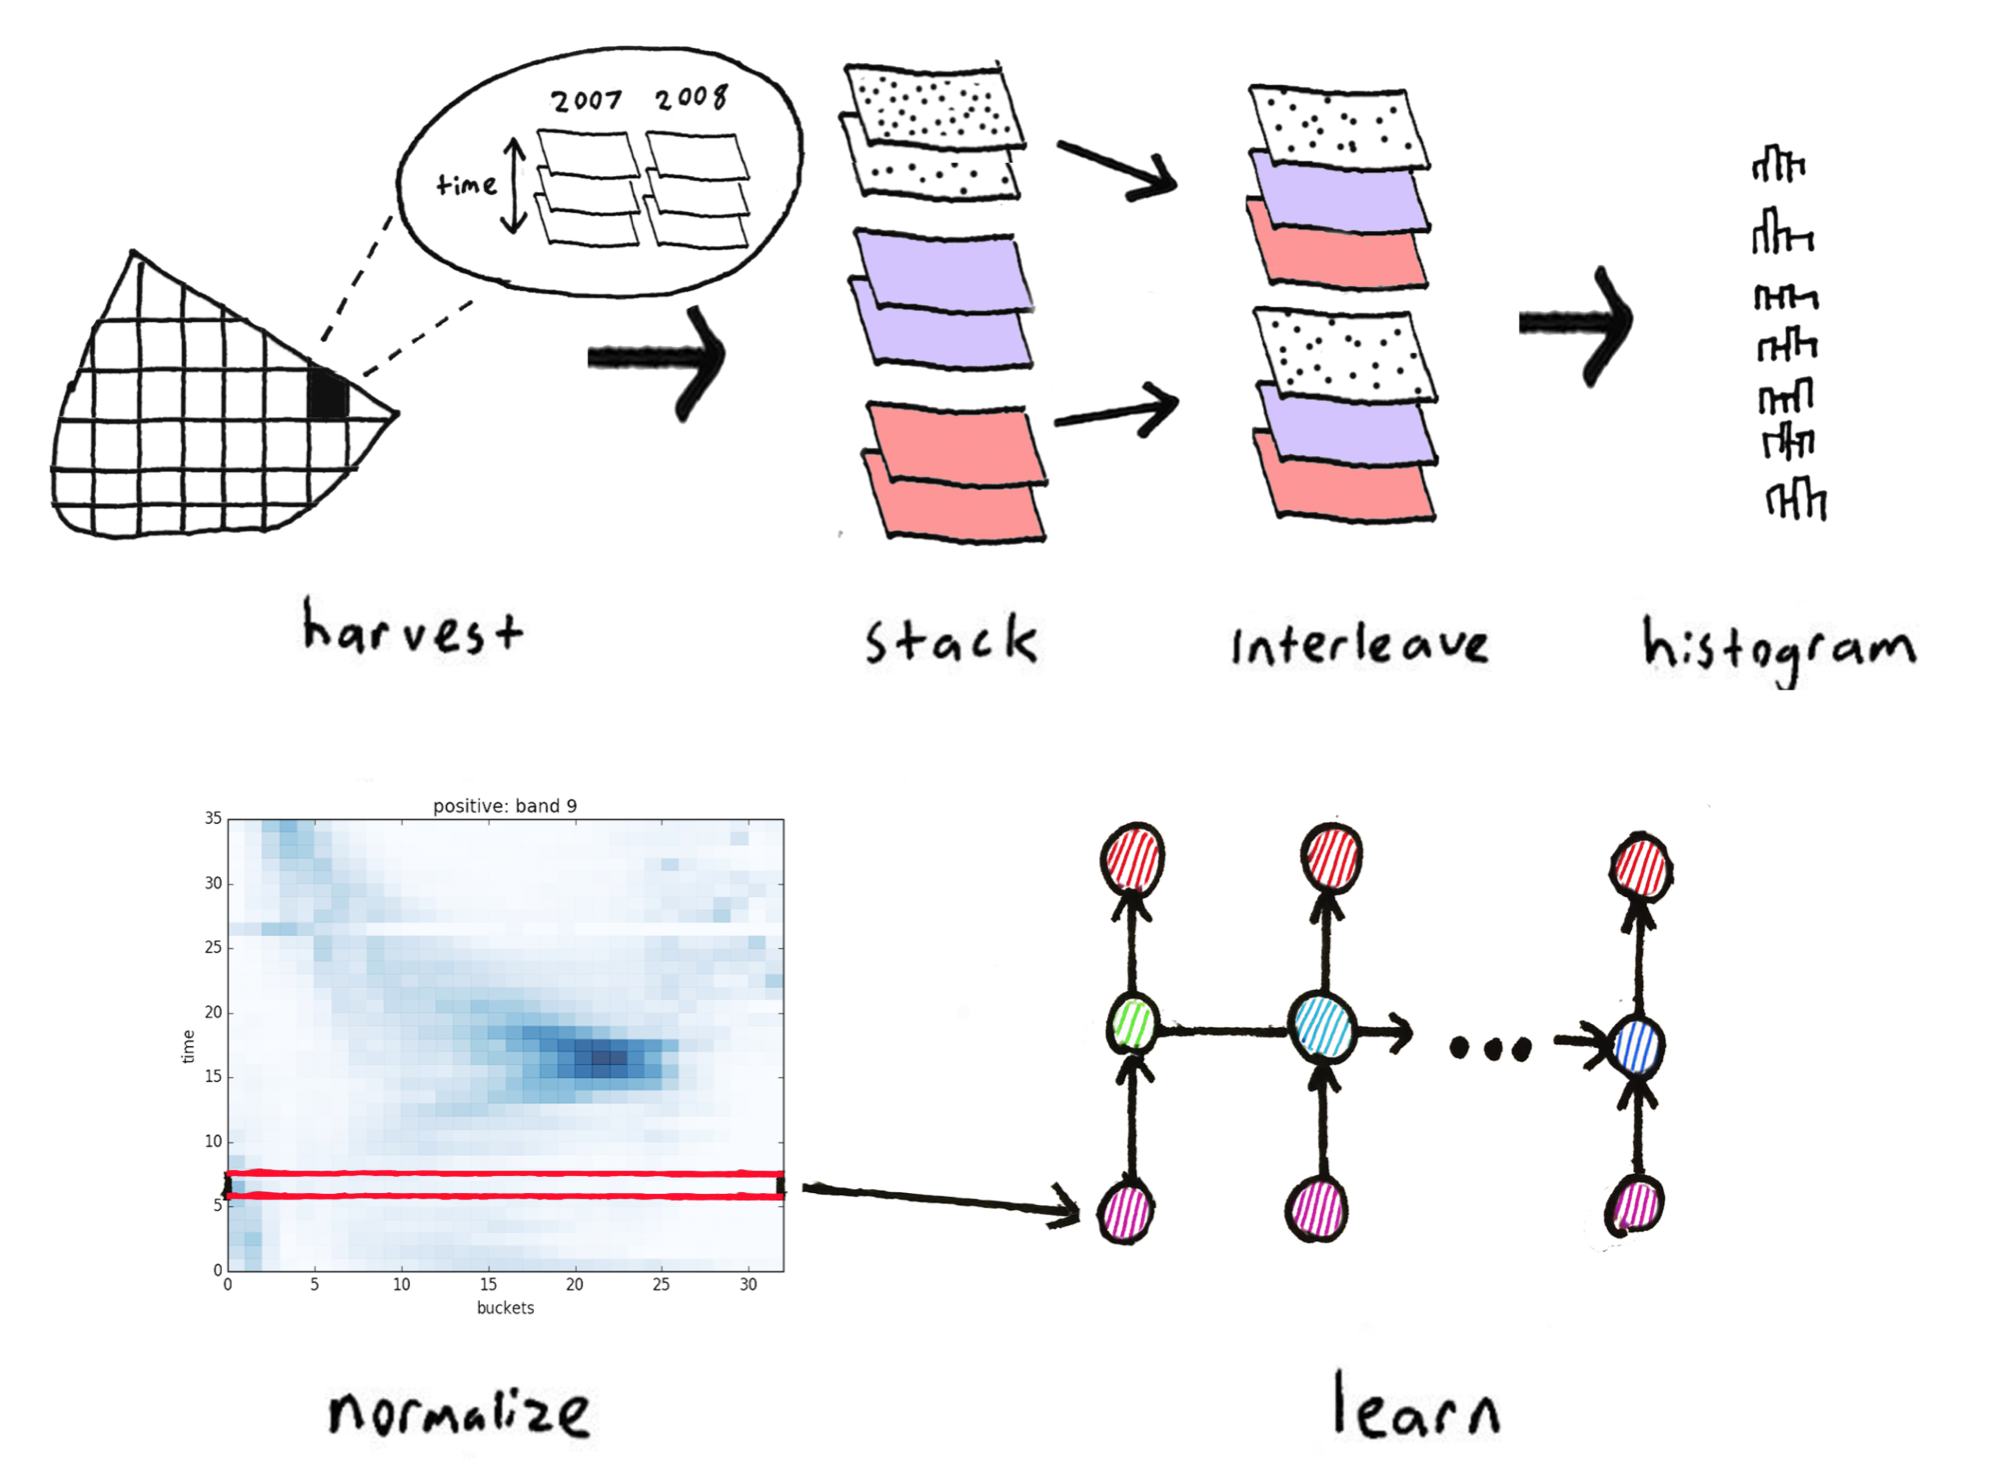 2007 2008
time
harvest
stack
interleave
histogram
positive: band 9
35
30
25
20
15
10
5
0
time
0 5 10 15 20 25 30
buckets
normalize
learn